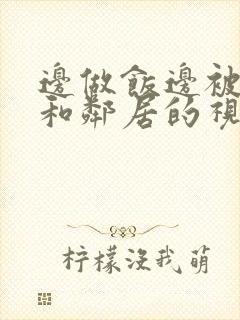 邊做飯邊被
和鄰居的視
柠檬沒我萌